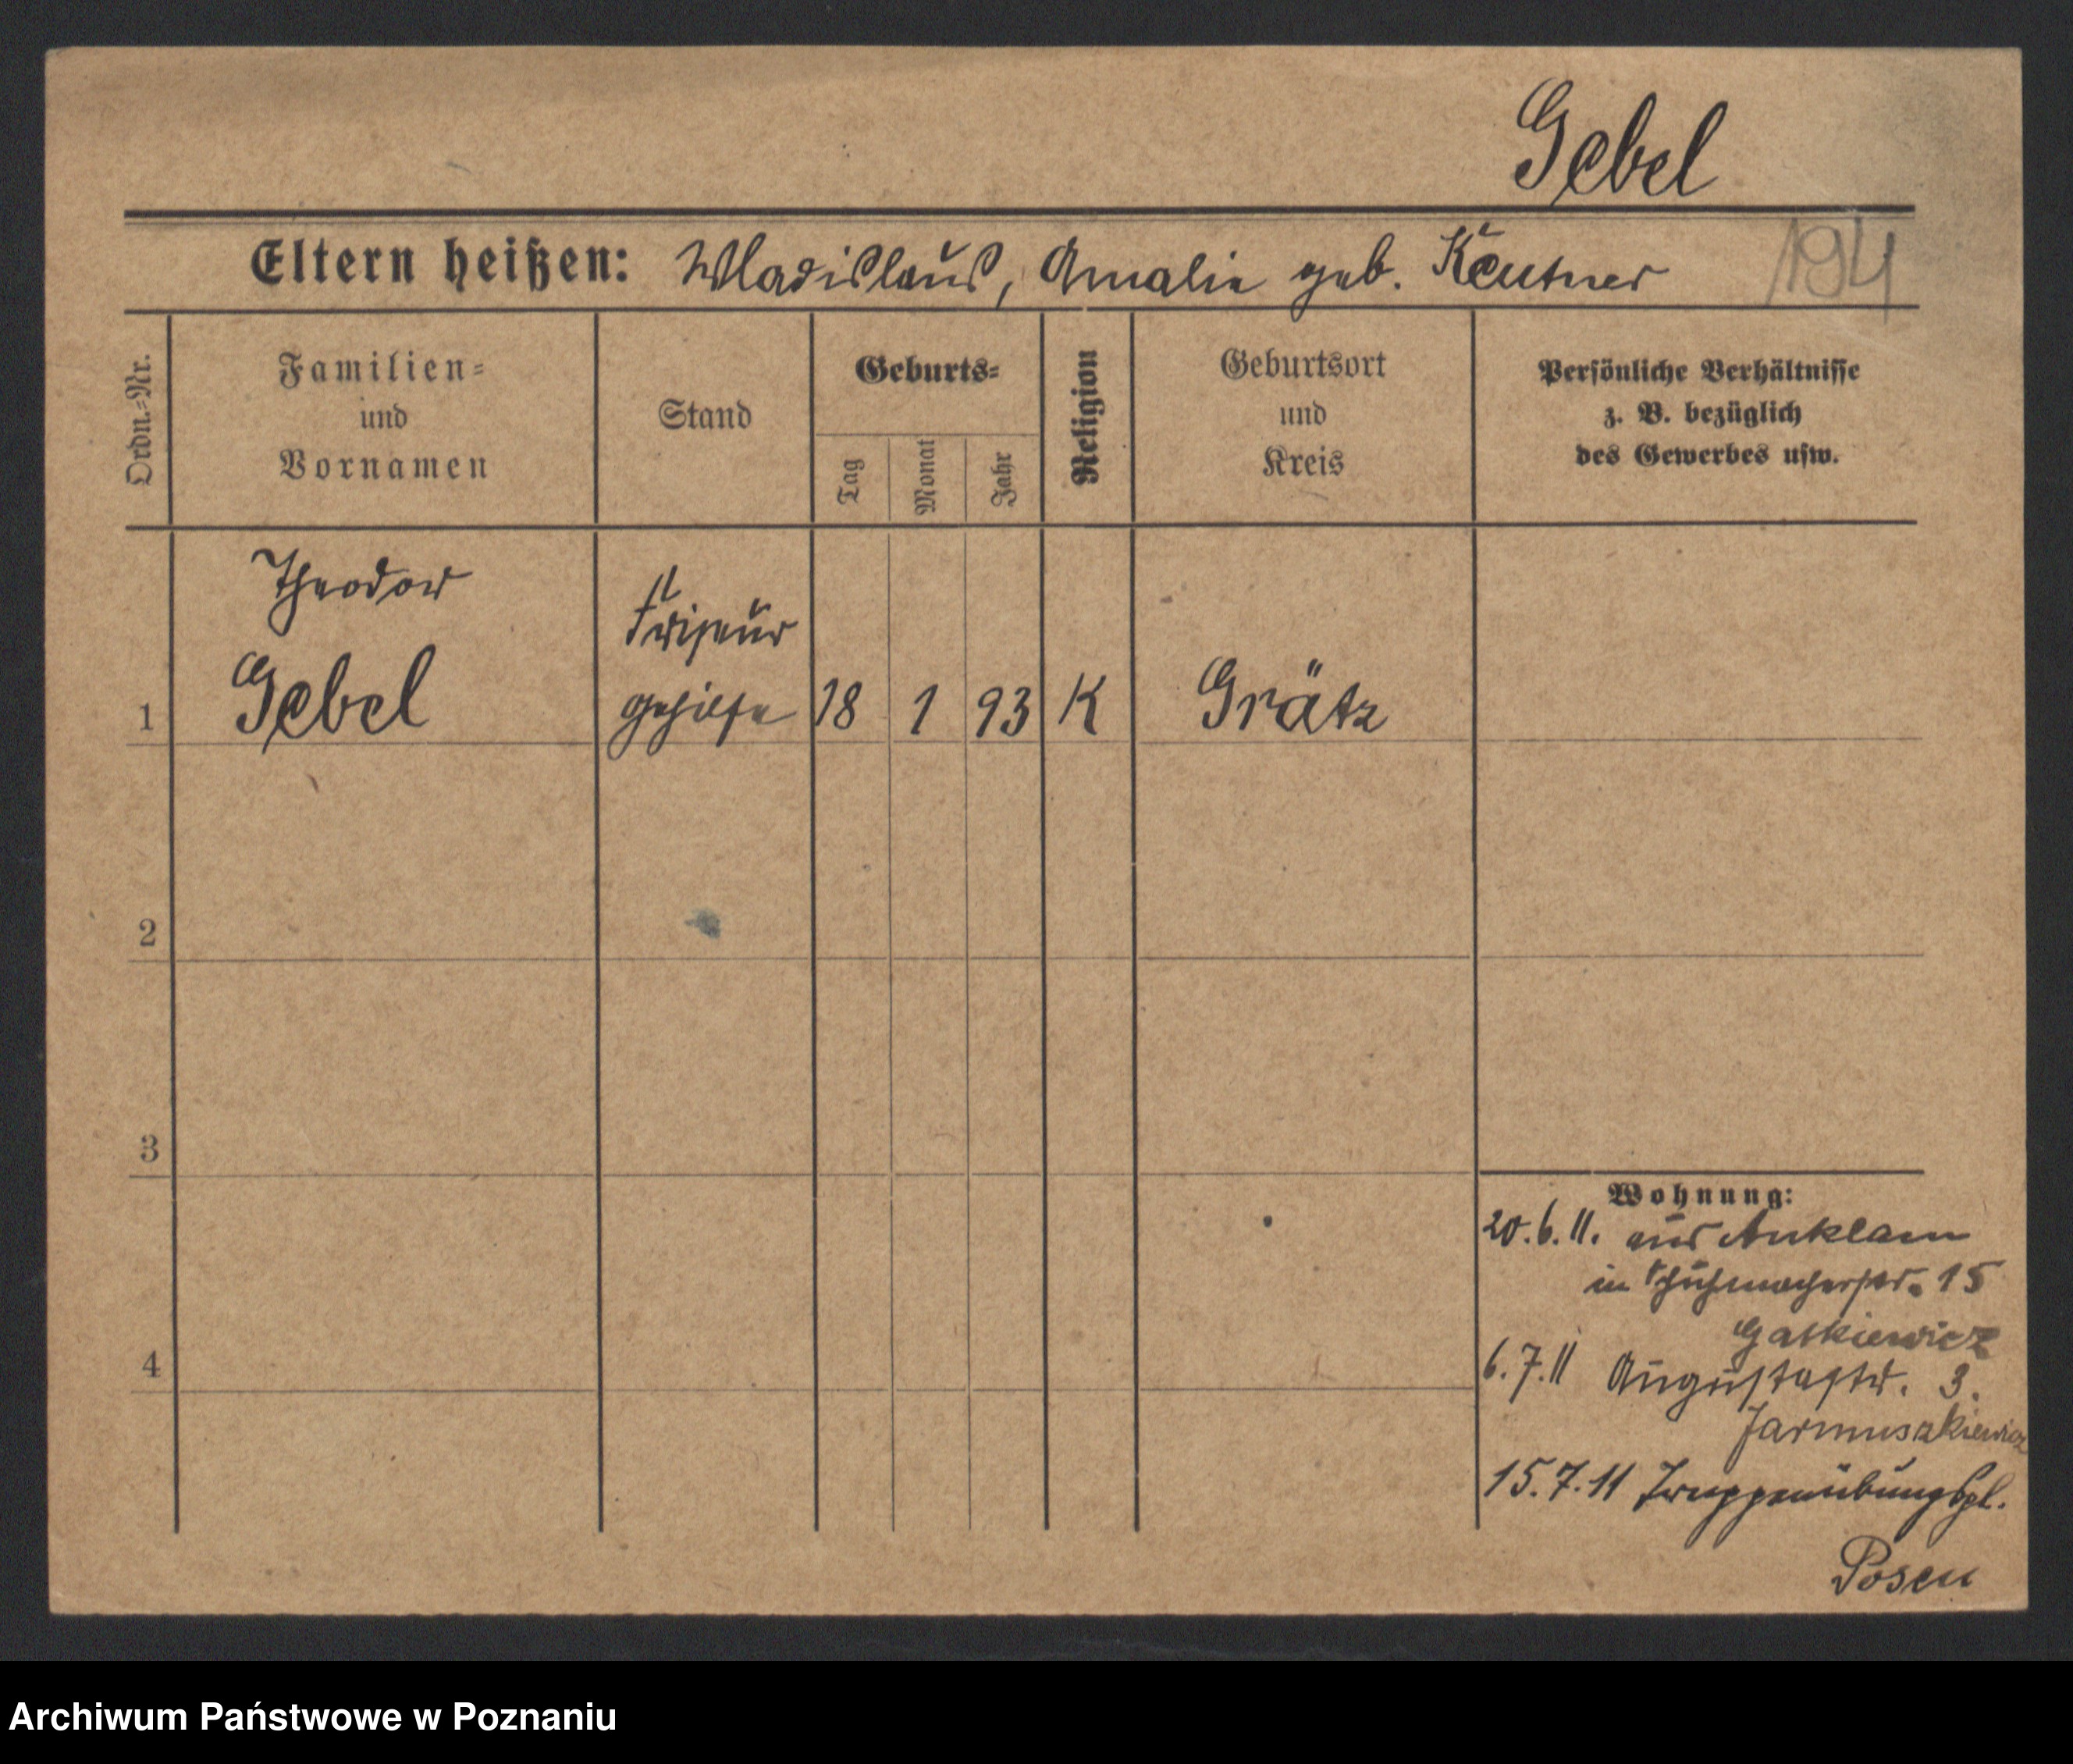 Gebel
Eltern heißen: Wladislaus, Amalie geb. Keutner
194
Ordn.=Nr.
Familien=
und
Vornamen
Stand
Geburts=
Tag
Monat
Jahr
Religion
Geburtsort
und
Kreis
Persönliche Verhältnisse
z. B. bezüglich
des Gewerbes usw.
1
Theodor
Gebel
Friseur
gehilfe
18
1
93
K
Grätz
2
3
4
Wohnung:
20.6.11. aus Anklam
in Schuhmacherstr. 15
6.7.11 Augustastr. 3.
Jarmuszkiewicz
15.7.11 Truppenübungspl.
Posen
Archiwum Państwowe w Poznaniu